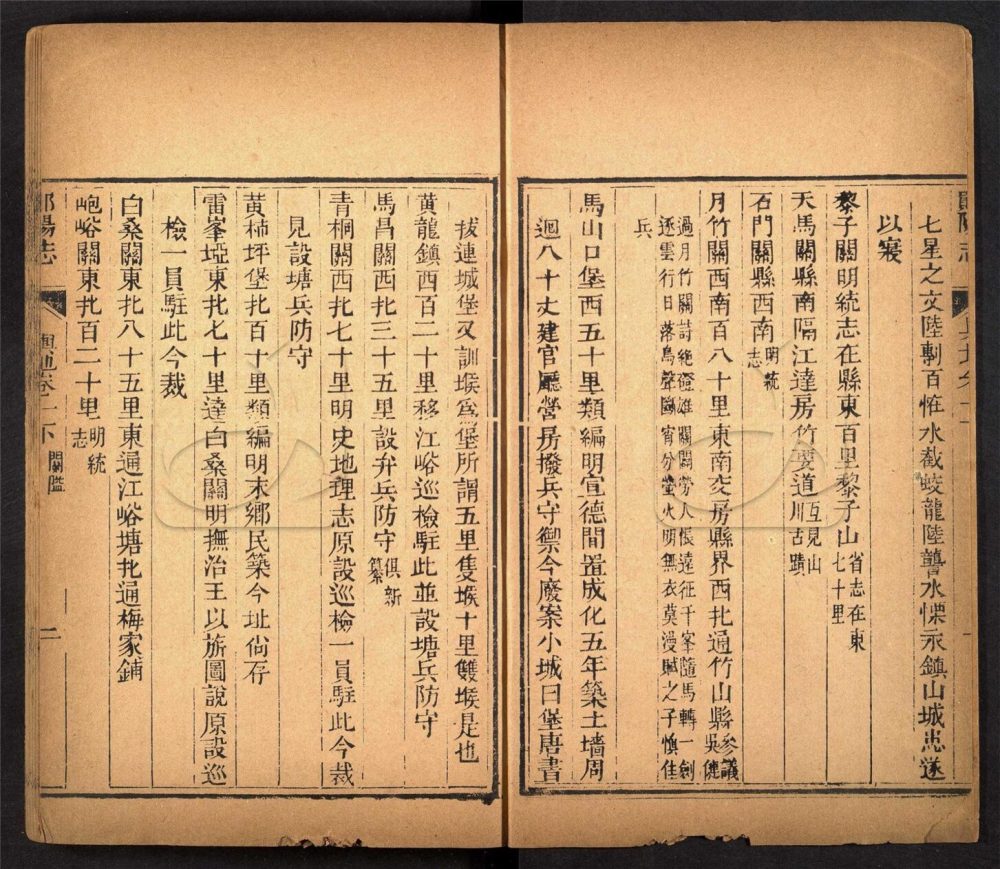 七星之文陸剸百怪水截蛟龍陸讋水慄永鎮山城忠遂
以寢
黎子關明統志在縣東百里黎子山省志在東七十里
天馬關縣南隔江達房竹要道互見山川古蹟
石門關縣西南明統志
月竹關西南百八十里東南交房縣界西北通竹山縣參議吳
過月竹關詩絶磴雄關關勞人悵遠征千峯隨馬轉一劍
逐雲行日落鳥聲 宵分螢火明無衣莫漫賦之子慎佳
兵
馬山口堡西五十里類編明宣德間置成化五年築土墻周
迴八十丈建官廳營房撥兵守禦今廢案小城曰堡唐書
拔連城堡又訓堠爲堡所謂五里隻堠十里雙堠是也
黃龍鎮西百二十里移江峪巡檢駐此並設塘兵防守
馬昌關西北三十五里設弁兵防守俱新纂
青桐關西北七十里明史地理志原設巡檢一員駐此今裁
見設塘兵防守
黃柿坪堡北百十里類編明末鄉民築今址尙存
雷峯埡東北七十里達白桑關明撫治王以旂圖說原設巡
檢一員駐此今裁
白桑關東北八十五里東通江峪塘北通梅家鋪
峗峪關東北百二十里明統志
鄖陽志
卷一下
關隘
二